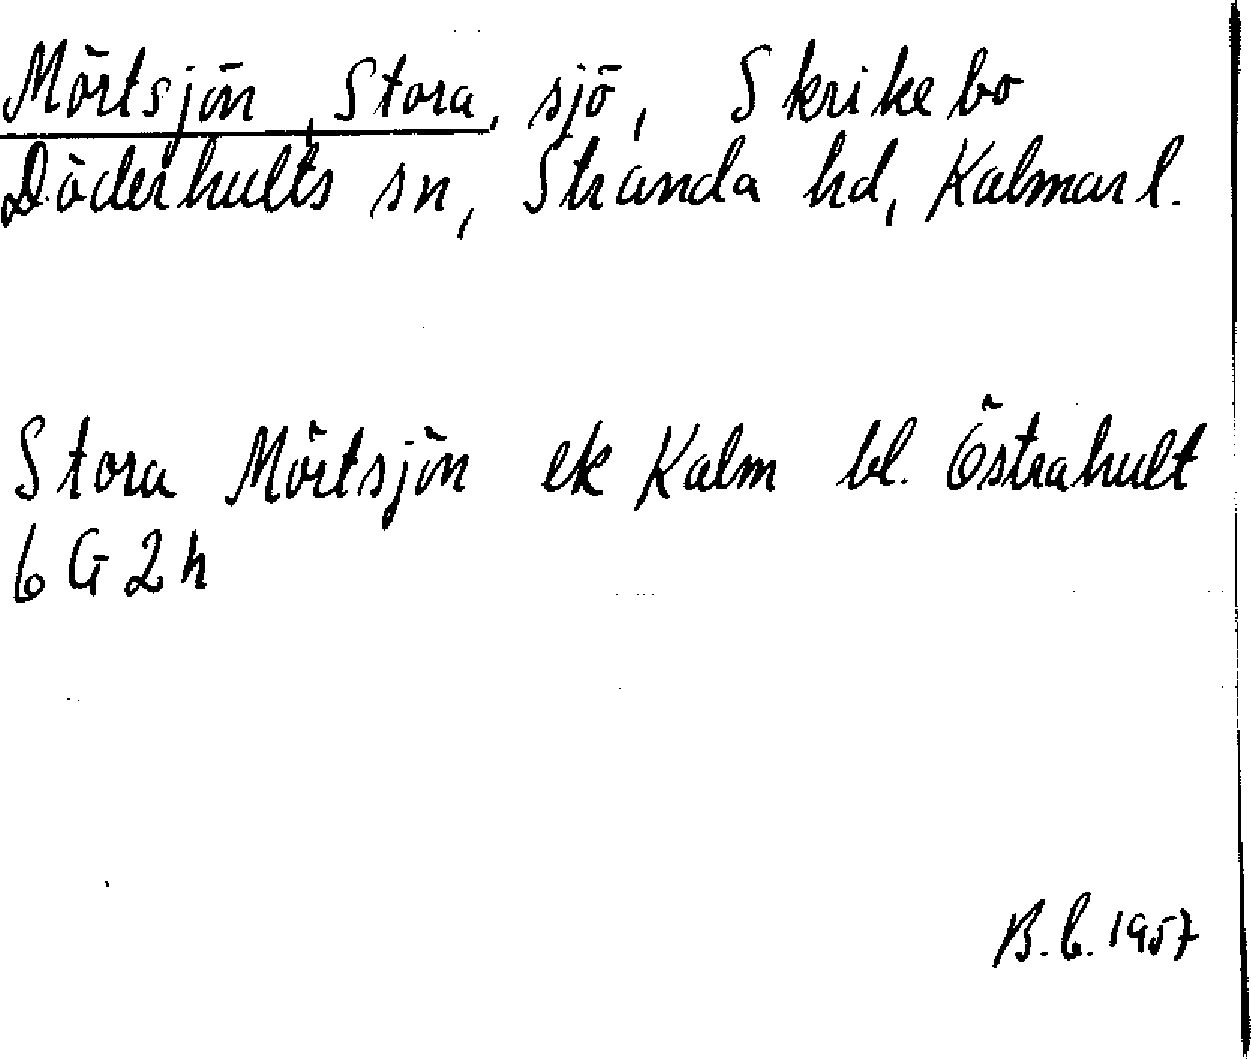 Mörtsjön, Stora, sjö, Skrikebo
Döderhults sn, Stranda hd, Kalmar l.
Stora Mörtsjön ek Kalm bl. Östrahult
6 G 2 h
B.b. 1957